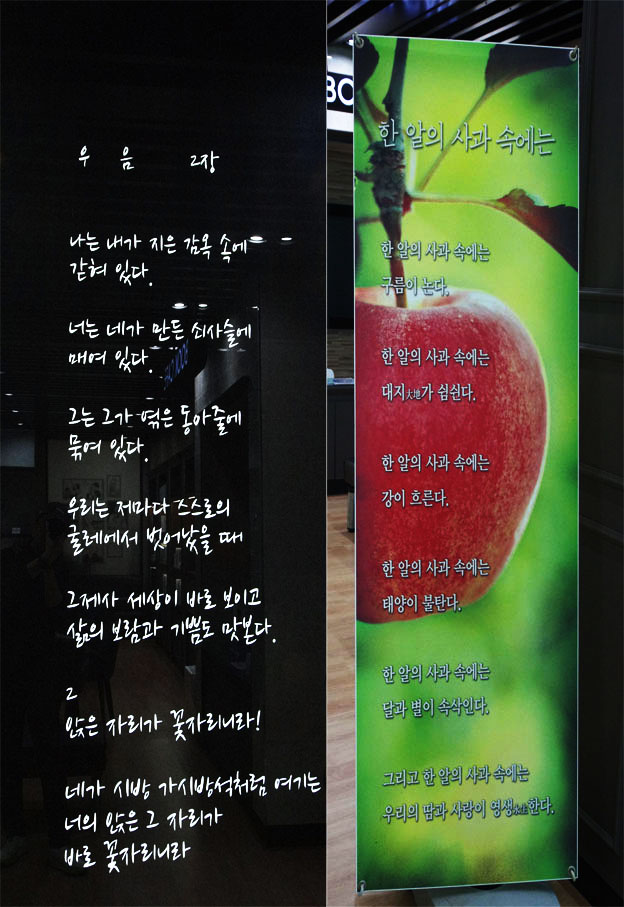 우 음 2장
나는 내가 지은 감옥 속에
갇혀 있다.
너는 네가 만든 쇠사슬에
매여 있다.
그는 그가 엮은 동아줄에
묶여 있다.
우리는 저마다 스스로의
굴레에서 벗어났을 때
그제사 세상이 바로 보이고
삶의 보람과 기쁨도 맛본다.
2
앉은 자리가 꽃자리니라!
네가 시방 가시방석처럼 여기는
너의 앉은 그 자리가
바로 꽃자리니라
BO
한 알의 사과 속에는
한 알의 사과 속에는
구름이 논다.
한 알의 사과 속에는
대지大地가 쉼쉰다.
한 알의 사과 속에는
강이 흐른다.
한 알의 사과 속에는
태양이 불탄다.
한 알의 사과 속에는
달과 별이 속삭인다.
그리고 한 알의 사과 속에는
우리의 땀과 사랑이 영생永生한다.